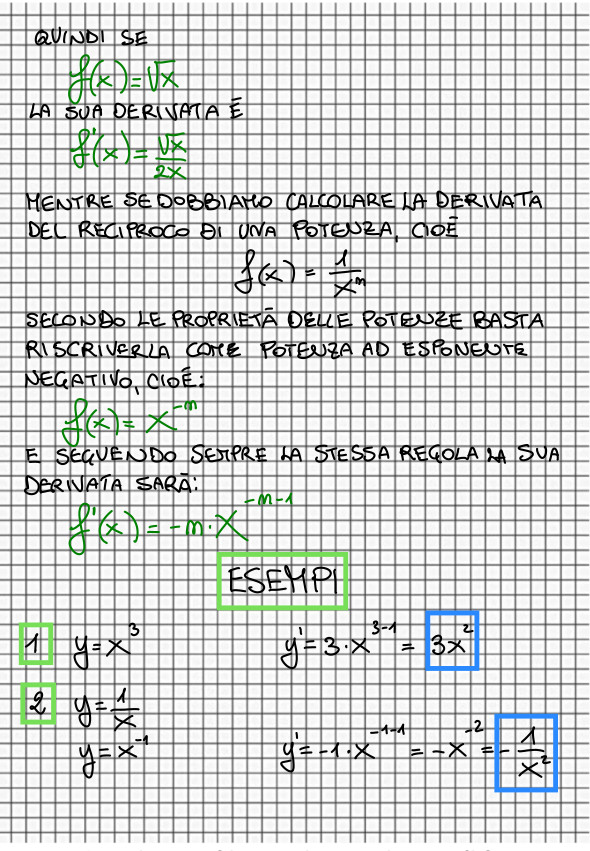 QUINDI SE
f(x)=√x
LA SUA DERIVATA È
f'(x)=√x/2x
MENTRE SE DOBBIAMO CALCOLARE LA DERIVATA
DEL RECIPROCO DI UNA POTENZA, CIOÈ
f(x) = 1/xⁿ
SECONDO LE PROPRIETÀ DELLE POTENZE BASTA
RISCRIVERLA COME POTENZA AD ESPONENTE
NEGATIVO, CIOÈ:
f(x)= x⁻ⁿ
E SEGUENDO SEMPRE LA STESSA REGOLA LA SUA
DERIVATA SARÀ:
f'(x) = -n·x⁻ⁿ⁻¹
ESEMPI
1 y=x³ y'=3·x³⁻¹ = 3x²
2 y=1/x
y=x⁻¹ y'=-1·x⁻¹⁻¹ = -x⁻² = -1/x²